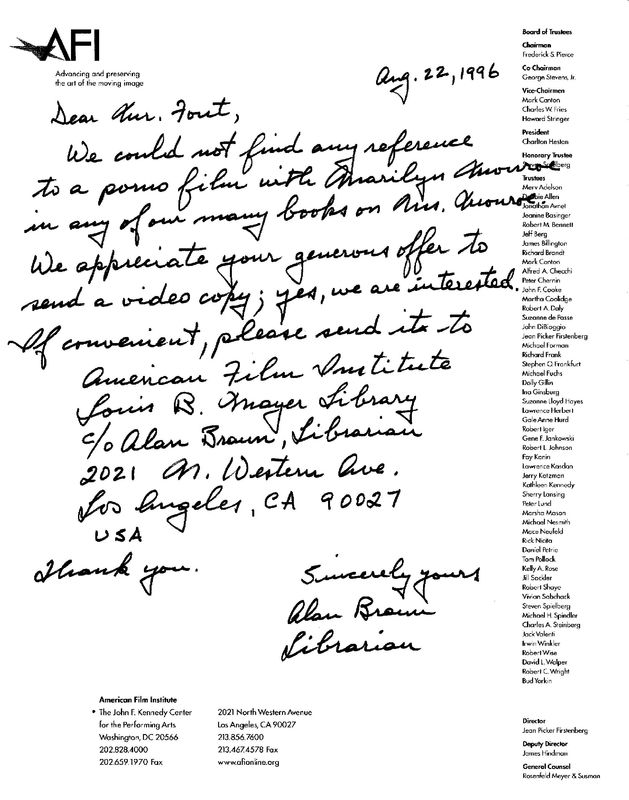 AFI
Advancing and preserving
the art of the moving image
Aug. 22, 1996
Dear Mr. Fout,
We could not find any reference
to a porno film with Marilyn Monroe
in any of our many books on Ms. Monroe.
We appreciate your generous offer to
send a video copy; yes, we are interested.
If convenient, please send it to
American Film Institute
Louis B. Mayer Library
c/o Alan Braun, Librarian
2021 N. Western Ave.
Los Angeles, CA 90027
USA
Thank you.
Sincerely yours
Alan Braun
Librarian
Board of Trustees
Chairman
Frederick S. Pierce
Co-Chairman
George Stevens, Jr.
Vice-Chairmen
Mark Canton
Charles W. Fries
Howard Stringer
President
Charlton Heston
Honorary Trustee
Trustees
Merv Adelson
Debbie Allen
Jonathan Avnet
Jeanine Basinger
Robert M. Bennett
Jeff Berg
James Billington
Richard Brandt
Mark Canton
Alfred A. Checchi
Peter Chernin
John F. Cooke
Martha Coolidge
Robert A. Daly
Suzanne de Passe
John DiBiaggio
Jean Picker Firstenberg
Michael Forman
Richard Frank
Stephen O. Frankfurt
Michael Fuchs
Daily Gillin
Ina Ginsburg
Suzanne Lloyd Hayes
Lawrence Herbert
Gale Anne Hurd
Robert Iger
Gene F. Jankowski
Robert L. Johnson
Fay Kanin
Lawrence Kasdan
Jerry Katzman
Kathleen Kennedy
Sherry Lansing
Peter Lund
Marsha Mason
Michael Nesmith
Mace Neufeld
Rick Nicita
Daniel Petrie
Tom Pollock
Kelly A. Rose
Jill Sackler
Robert Shaye
Vivian Sobchack
Steven Spielberg
Michael H. Spindler
Charles A. Steinberg
Jack Valenti
Irwin Winkler
Robert Wise
David L. Wolper
Robert C. Wright
Bud Yorkin
Director
Jean Picker Firstenberg
Deputy Director
James Hindman
General Counsel
Rosenfeld Meyer & Susman
American Film Institute
• The John F. Kennedy Center
for the Performing Arts
Washington, DC 20566
202.828.4000
202.659.1970 Fax
2021 North Western Avenue
Los Angeles, CA 90027
213.856.7600
213.467.4578 Fax
www.afionline.org